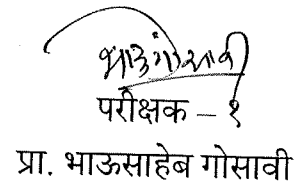 भाऊगोसावी
परीक्षक – १
प्रा. भाऊसाहेब गोसावी